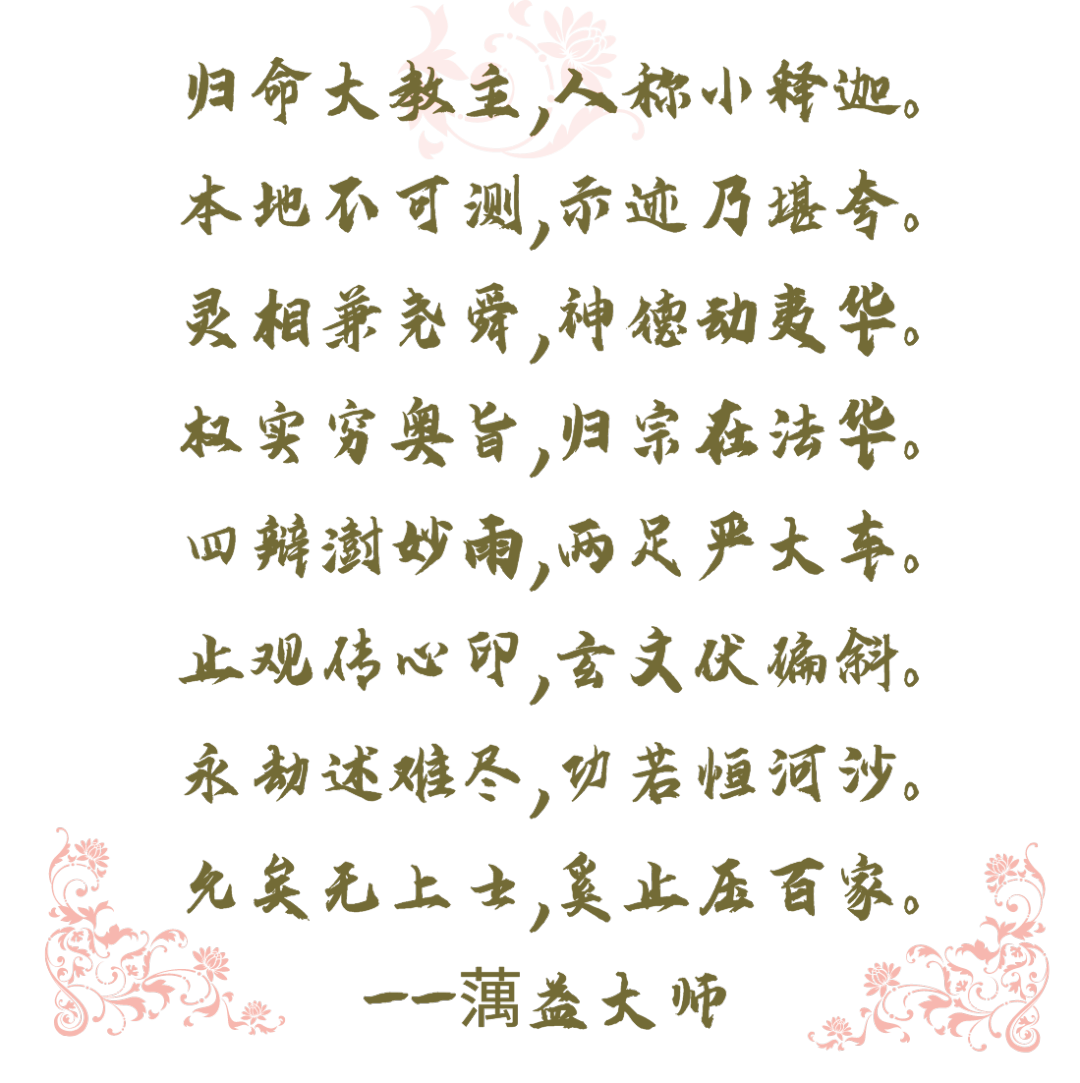 归命大教主,人称小释迦。
本地不可测,示迹乃堪夸。
灵相兼尧舜,神德动夷华。
权实穷奥旨,归宗在法华。
四辩澍妙雨,两足严大车。
止观传心印,玄文伏偏斜。
永劫述难尽,功若恒河沙。
允矣无上士,奚止压百家。
——蕅益大师